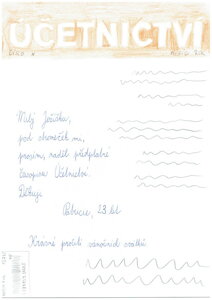 ÚČETNICTVÍ
Milý Ježíšku,
pod stromeček mi,
prosím, naděl předplatné
časopisu Účetnictví.
Děkuji
23 let
Krásné prožití vánočních svátků